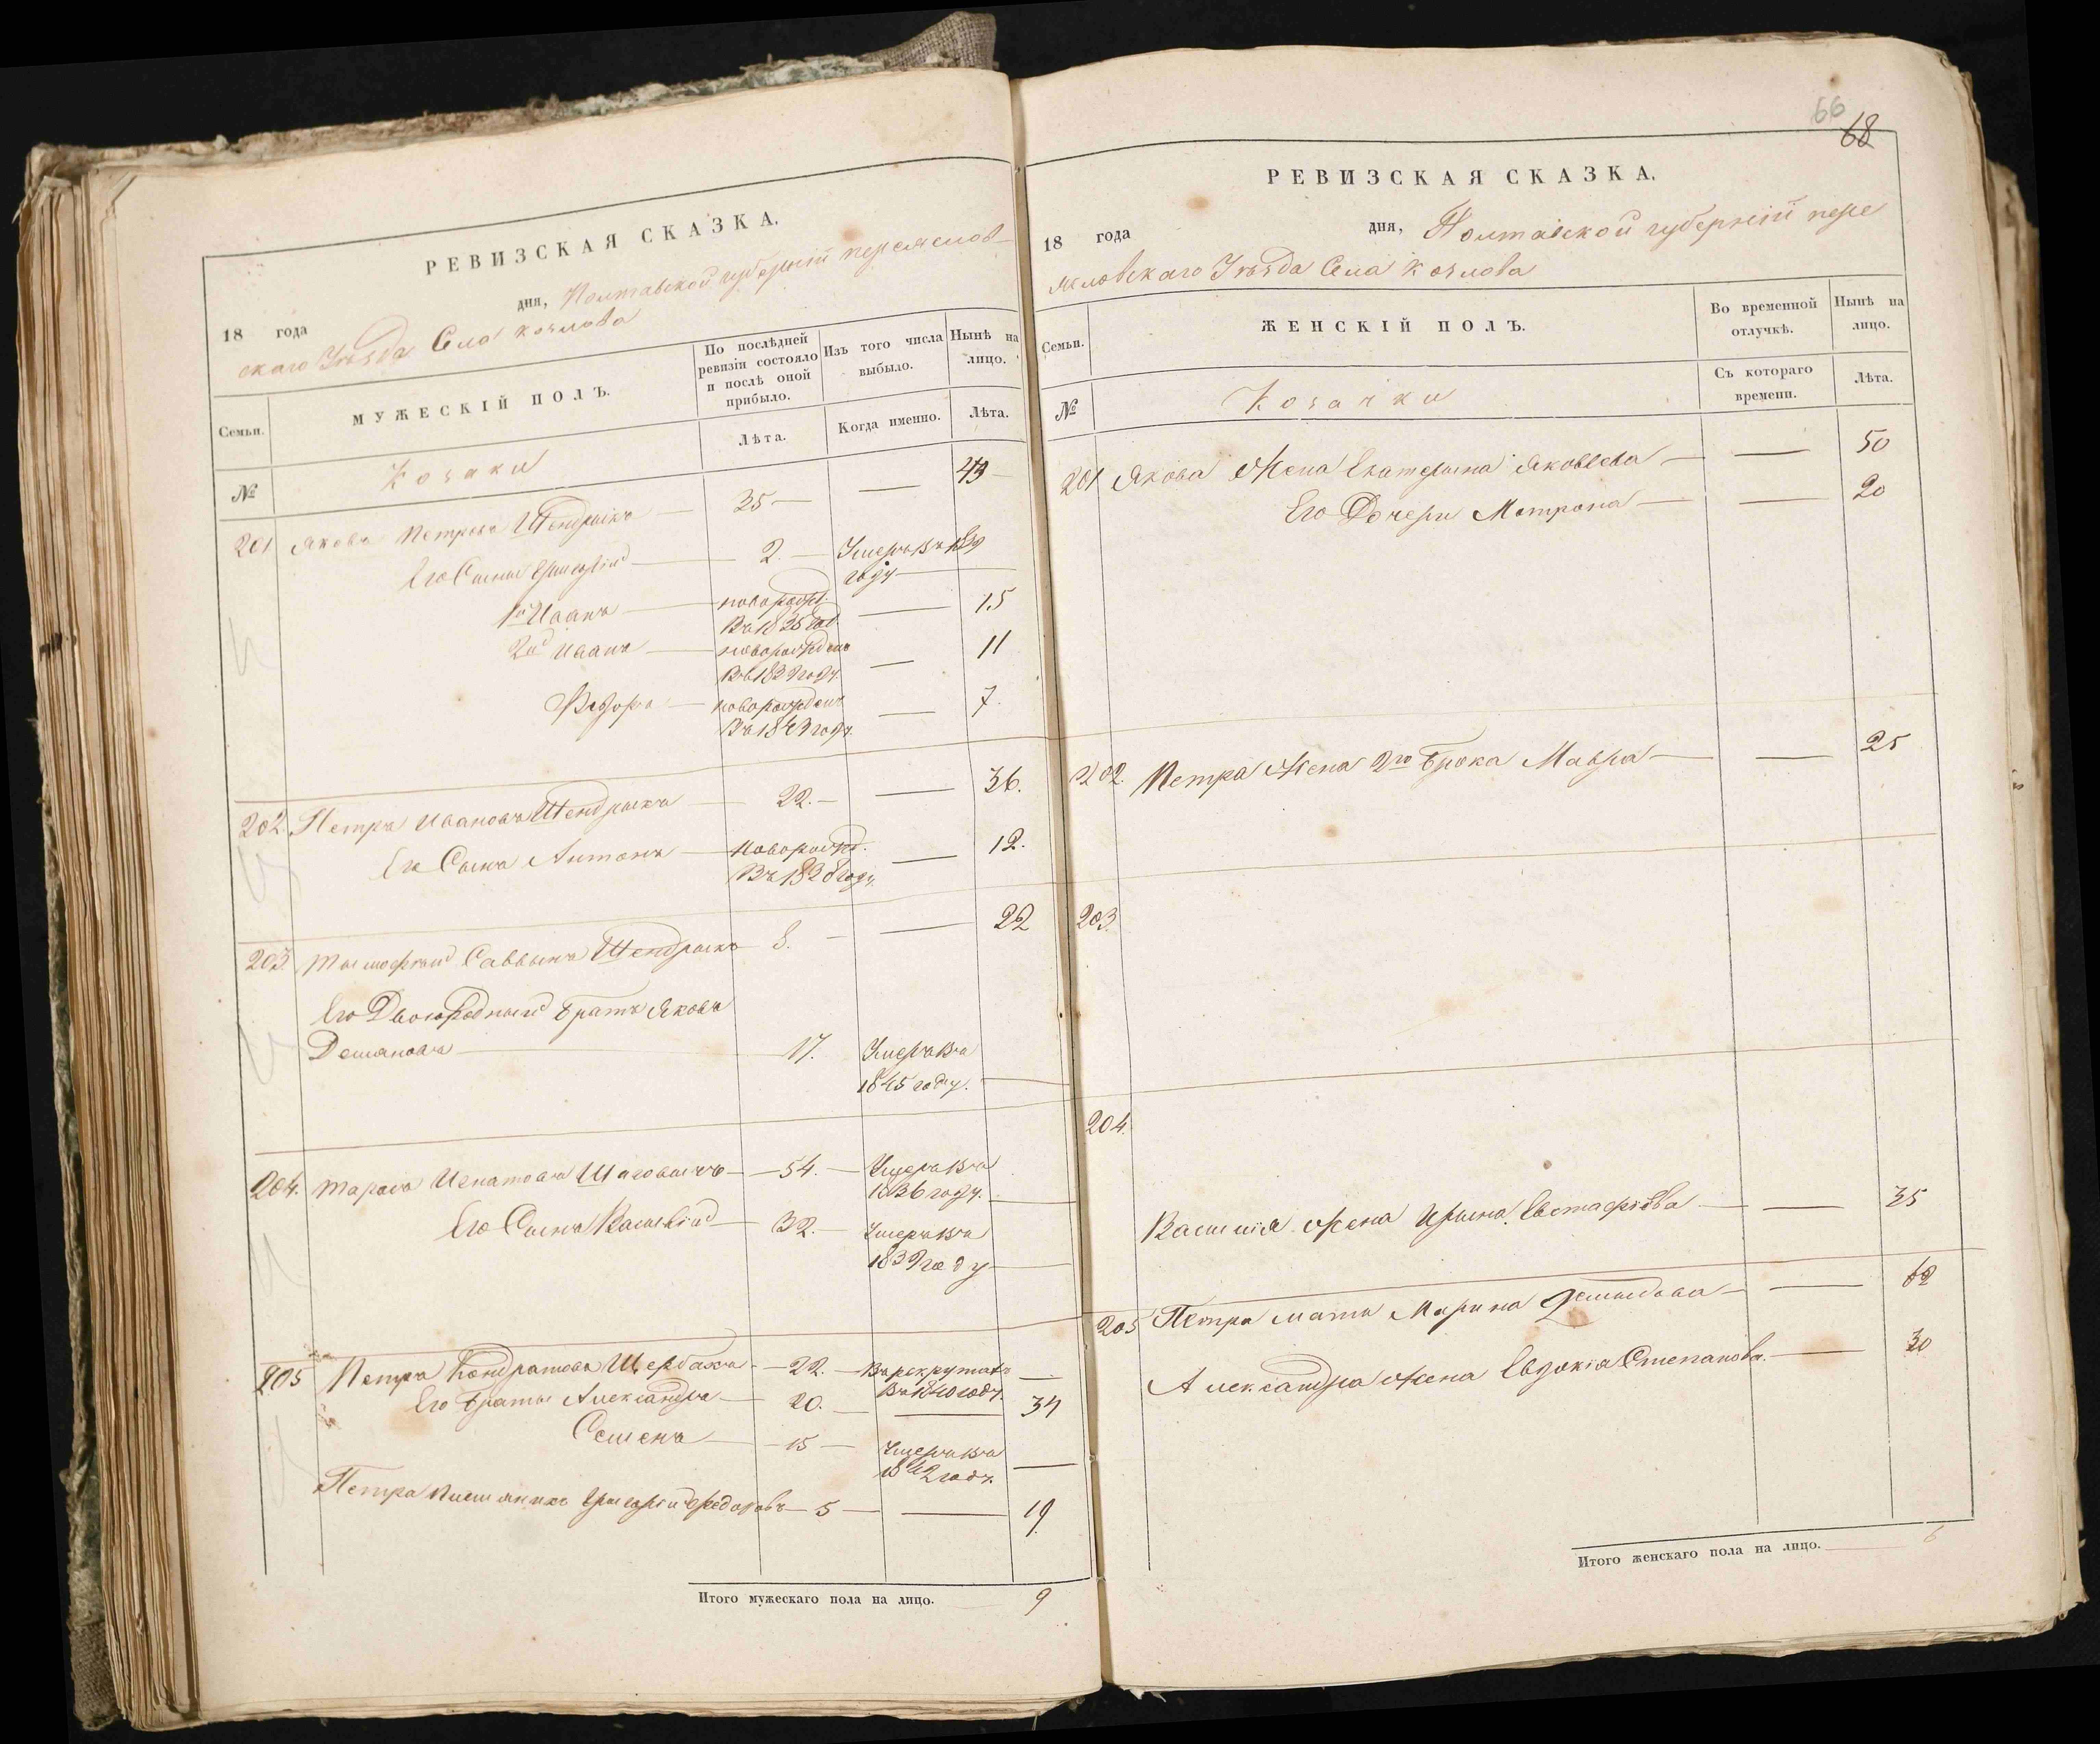 РЕВИЗСКАЯ СКАЗКА.
18 года дня, Полтавской губерніи переяслов-
скаго Уѣзда Села Козлова
Семьи.
МУЖЕСКІЙ ПОЛЪ.
По послѣдней ревизіи состояло и послѣ оной прибыло.
Изъ того числа выбыло.
Нынѣ на лицо.
Лѣта.
Когда именно.
Лѣта.
№
Козаки
201 Яковъ Петровъ Шендрыкъ 35 — — 49
Его Сыны Григорій 2. Умеръ въ 1839
году
1й Иванъ новорожд. — 15
Въ 1835 год.
2й Иванъ новорожденъ — 11
Въ 1839 году.
Федоръ новорожденъ — 7.
Въ 1843 году.
202. Петръ Ивановъ Шендрыкъ 22. — — 36.
Его Сынъ Антонъ новорожд. — 12.
Въ 1838 году.
203. Тымофѣй Саввынъ Шендрыкъ 8. — — 22
Его Двоюродный братъ Яковъ
Демяновъ 17. Умеръ въ
1845 году.
204. Тарасъ Игнатовъ 54. — Умеръ въ
1836 году.
Его Сынъ Василій 32. — Умеръ въ
1839 году
205 Петръ Кондратовъ Щербакъ 22. — Въ рекруты
Въ 1840 году.
Его братья Александръ 20. — — 34
Семенъ 15 — Умеръ въ
1842 году.
Петра Григорій Федоровъ 5 — — 19
Итого мужескаго пола на лицо. 9
66
68
РЕВИЗСКАЯ СКАЗКА.
18 года дня, Полтавской губерніи пере
яловскаго Уѣзда Села Козлова
Семьи.
ЖЕНСКІЙ ПОЛЪ.
Во временной отлучкѣ.
Нынѣ на лицо.
Съ котораго времени.
Лѣта.
№
Козачки
201 Якова Жена Екатерина Яковлева — — 50
Его Дочери Матрона — — 20
202. Петра Жена 2го брака Мавра — — 25
203.
204.
Василія Жена Ирина Евстафіева — — 35
205 Петра мать Марина Демидова — — 62
Александра жена Евдокія Степанова. — 30
Итого женскаго пола на лицо. 6